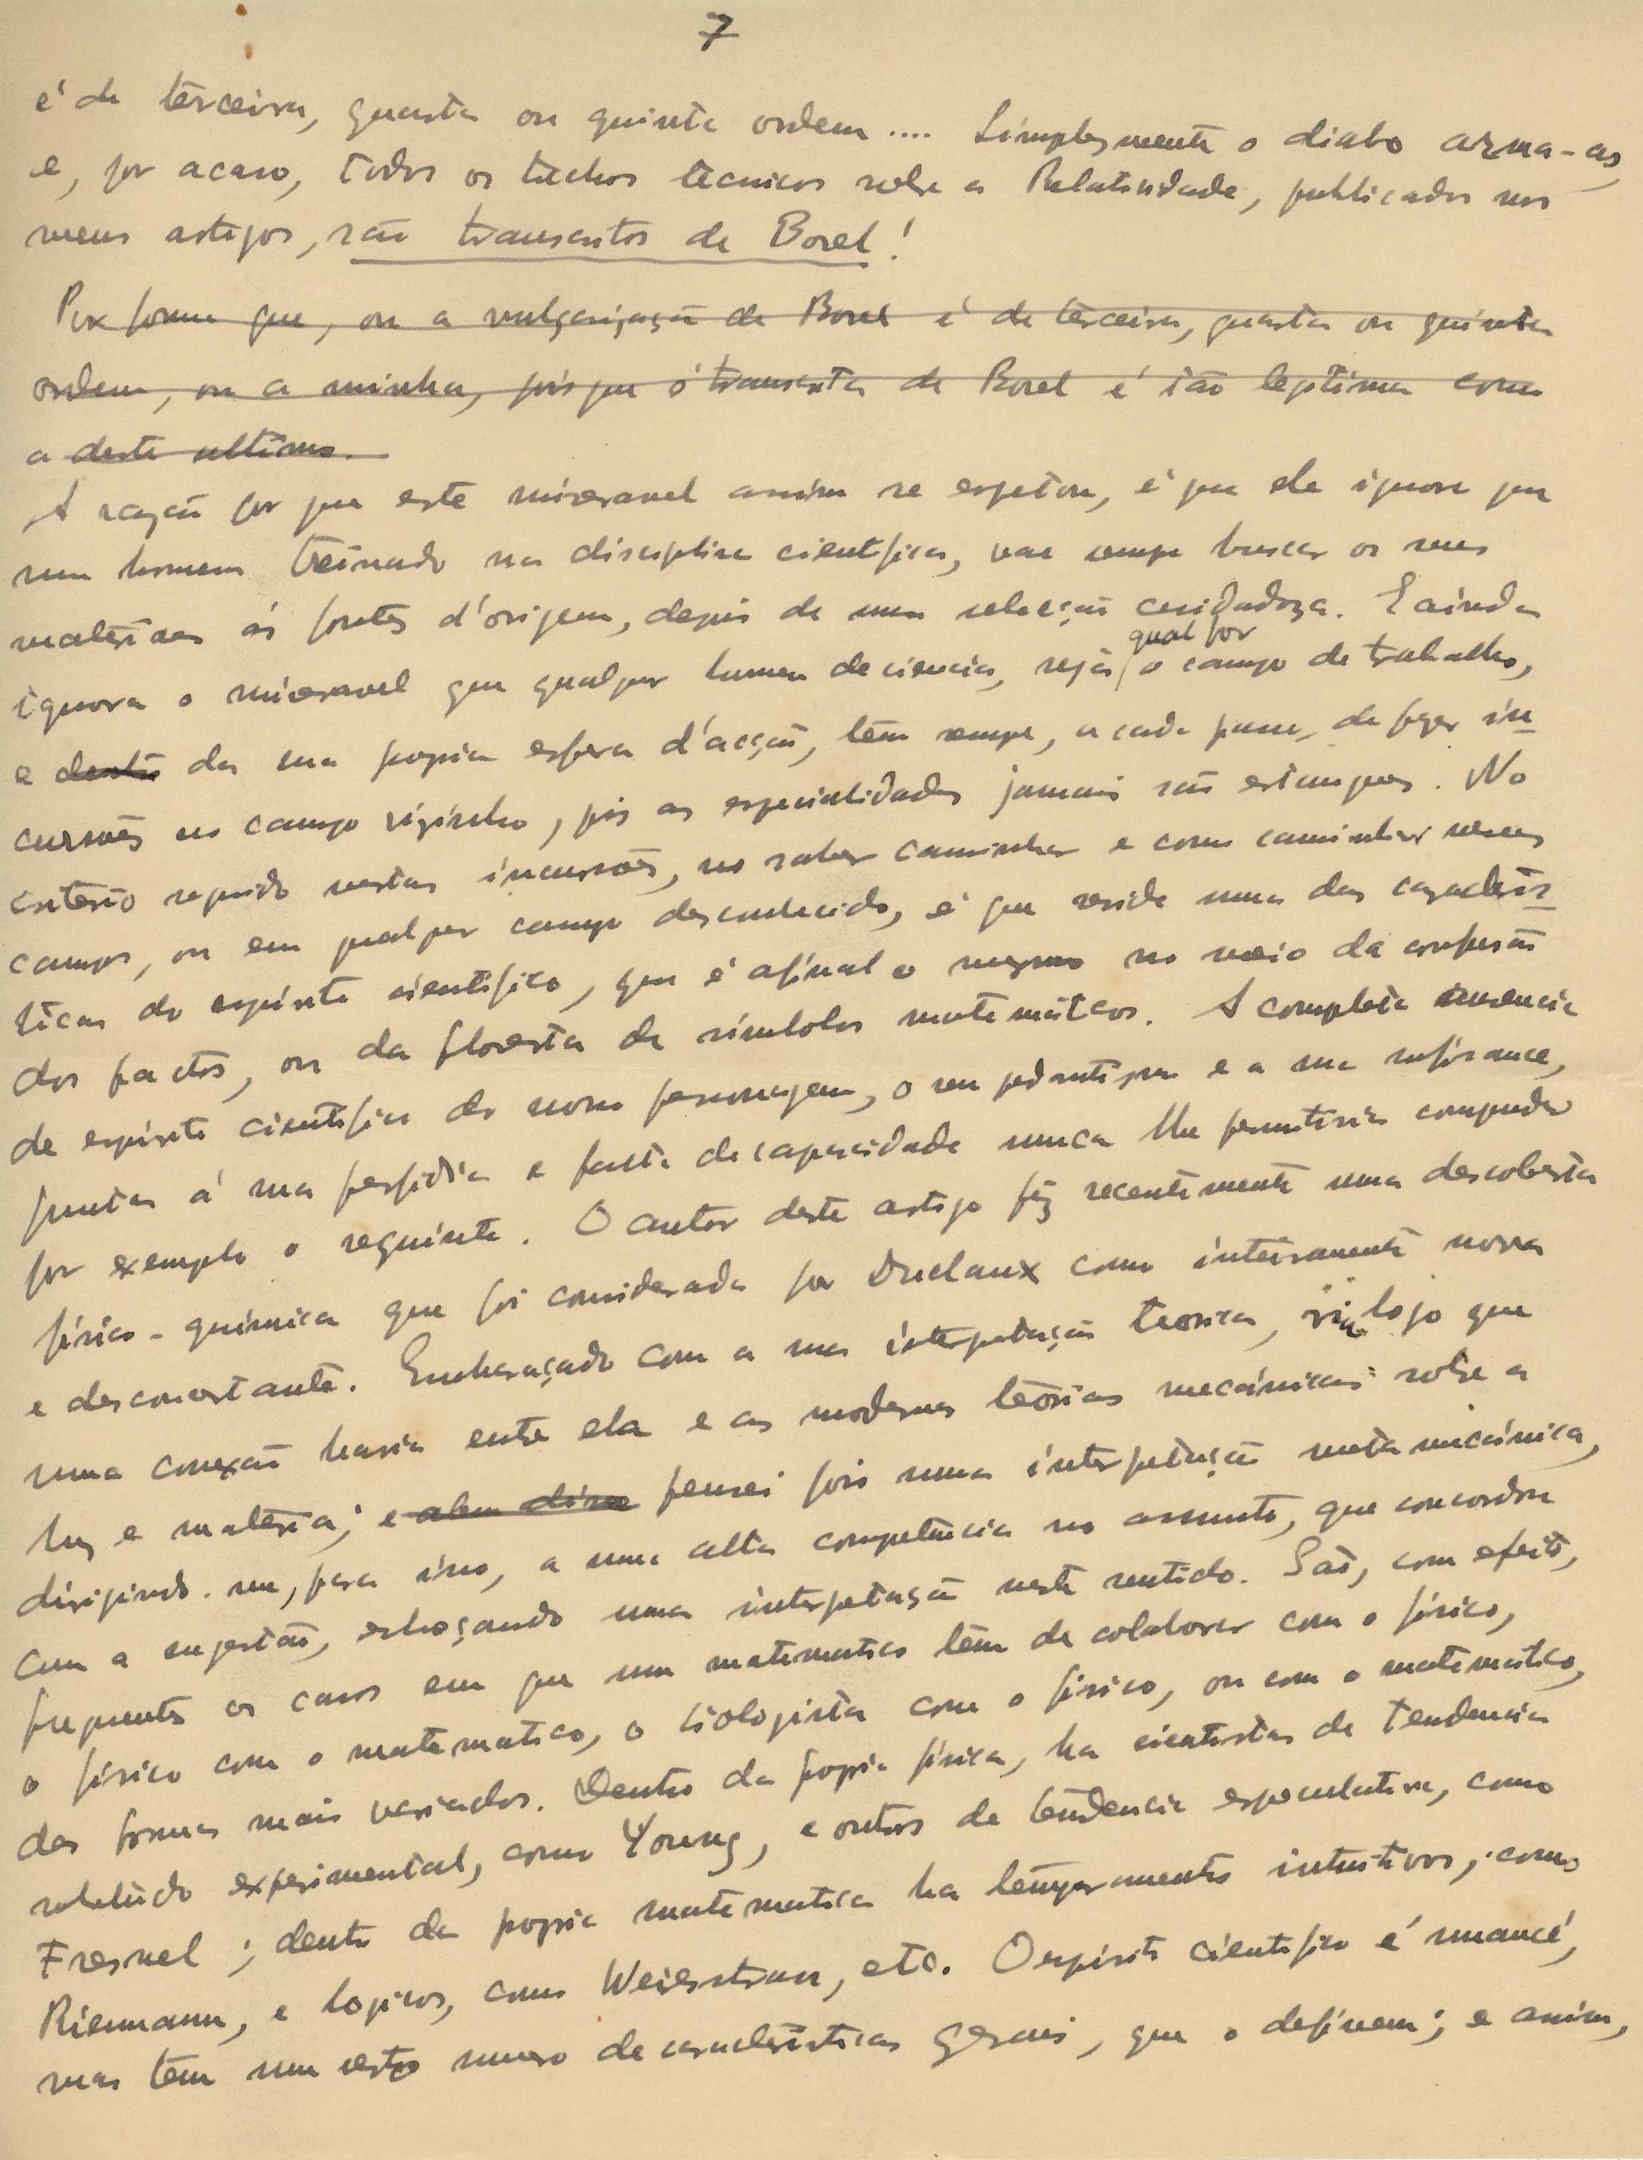 7
é de terceira, quarta ou quinta ordem .... Simplesmente o diabo arma-as,
e, por acaso, todos os trechos tecnicos sobre a Relatividade, publicados nos
meus artigos, são transcritos de Borel!
Por forma que, ou a vulgarização de Borel é de terceira, quarta ou quinta
ordem, ou a minha, pois que é transcrita de Borel é tão legitima como
a deste ultimo.
A razão por que este miseravel assim se espetou, é que ele ignora que
um homem treinado na disciplina cientifica, vae sempre buscar os seus
materiaes ás fontes d'origem, depois de uma selecção cuidadoza. E ainda
ignora o miseravel que qualquer homem de ciencia, seja qual for o campo de trabalho,
e dentro da sua propria esfera d'acção, têm sempre, a cada passo, de fazer in-
cursões no campo vizinho, pois as especialidades jamais são estanques. No
criterio seguido nestas incursões, no saber caminhar e como caminhar nesses
campos, ou em qualquer campo desconhecido, é que reside uma das caracteris-
ticas do espirito cientifico, que é afinal o mesmo no meio da confusão
dos factos, ou da floresta de simbolos matemáticos. A completa ausencia
de espirito cientifico do nosso personagem, o seu pedantismo e a sua suficiance,
juntas á sua perfidia e falta de capacidade nunca lhe permitiria compreender
por exemplo o seguinte. O autor deste artigo fêz recentemente uma descoberta
fisico-quimica que foi considerada por Duclaux como inteiramente nova
e desconcertante. Embaraçado com a sua interpretação teorica, vi logo que
uma conexão havia entre ela e as modernas teorias mecánicas sobre a
luz e materia; e alem disso pensei pois numa interpretação meta micánica,
dirigindo-me, para isso, a uma alta competência no assunto, que concordou
com a sugestão, esboçando uma interpretação neste sentido. São, com efeito,
frequentes os casos em que um matematico têm de colaborar com o fisico,
o fisico com o matematico, o biologista com o fisico, ou com o matemático,
das formas mais variadas. Dentro da propria fisica, ha cientistas de tendencia
sobretudo experimental, como Young, e outros de tendencia especulativa, como
Fresnel; dentro da propria matematica ha temperamentos intuitivos, como
Riemann, e logicos, como Weierstrass, etc. O espirito cientifico é nuancé,
mas tem um certo numero de caracteristicas gerais, que o definem; e assim,